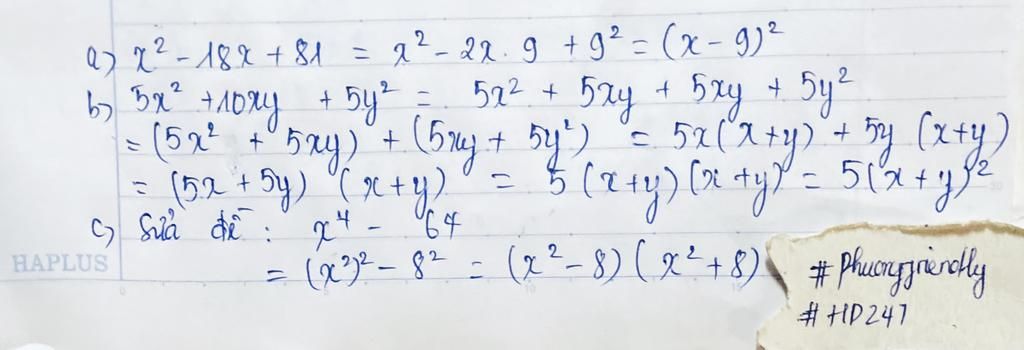 a) x² - 18x + 81 = x² - 2x . 9 + 9² = (x - 9)²
b) 5x² + 10xy + 5y² = 5x² + 5xy + 5xy + 5y²
= (5x² + 5xy) + (5xy + 5y²) = 5x(x+y) + 5y (x+y)
= (5x + 5y) (x+y) = 5(x+y)(x+y) = 5(x+y)²
c) Sửa đề : x⁴ - 64
= (x²)² - 8² = (x² - 8)(x² + 8)
HAPLUS
# Phuongfriendly
# HD247